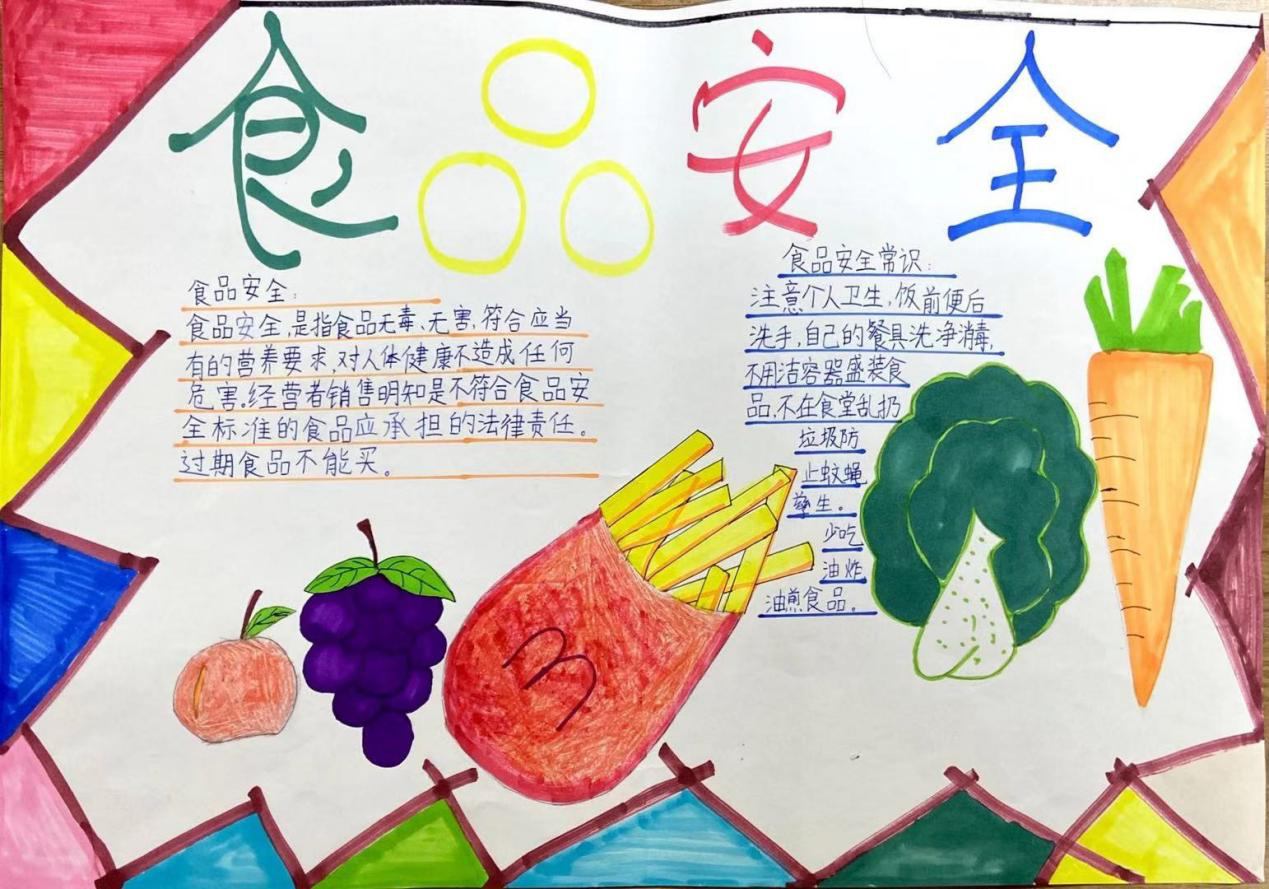 食品安全
食品安全:
食品安全,是指食品无毒、无害,符合应当
有的营养要求,对人体健康不造成任何
危害。经营者销售明知是不符合食品安
全标准的食品应承担的法律责任。
过期食品不能买。
食品安全常识:
注意个人卫生,饭前便后
洗手,自己的餐具洗净消毒,
不用洁容器盛装食
品,不在食堂乱扔
垃圾防
止蚊蝇
孳生。
少吃
油炸
油煎食品。